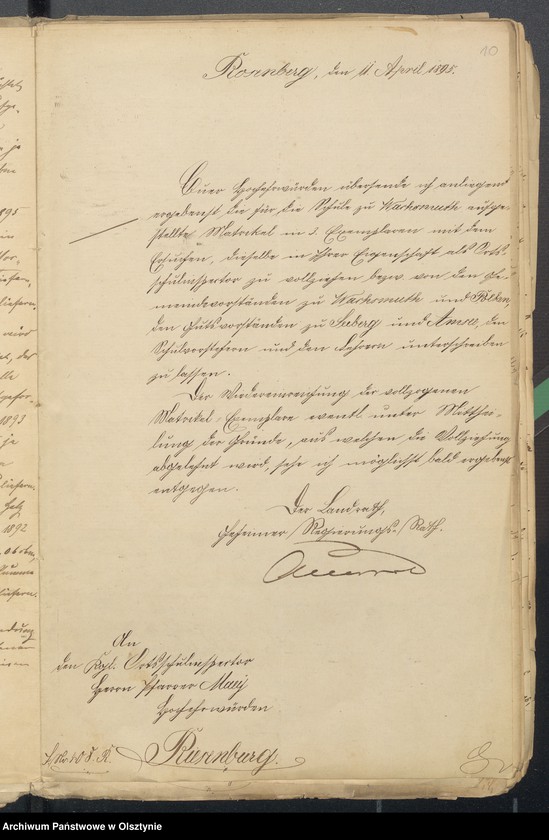 10
Rosenberg, den 11. April 1895.
Euer Hochehrwürden übersende ich anliegend
ergebenst die für die Schule zu Wachsmuth aufge-
stellte Matrikel in 3 Exemplaren mit dem
Ersuchen, dieselbe in Ihrer Eigenschaft als Orts-
schulinspektor zu vollziehen bezw. von den Ge-
meindevorständen zu Wachsmuth und
den Gutsvorständen zu Seeberg und den
Schulvorstehern und den Lehrern unterschreiben
zu lassen.
Der Wiedereinreichung der vollzogenen
Matrikel-Exemplare eventl. unter Mitthei-
lung der Gründe, aus welchen die Vollziehung
abgelehnt wird, sehe ich möglichst bald ergebenst
entgegen.
Der Landrath,
Geheimer Regierungs-Rath.
An
den Kgl. Ortsschulinspektor
Herrn Pfarrer
Hochehrwürden
Riesenburg.
1895
1893
1892
Archiwum Państwowe w Olsztynie